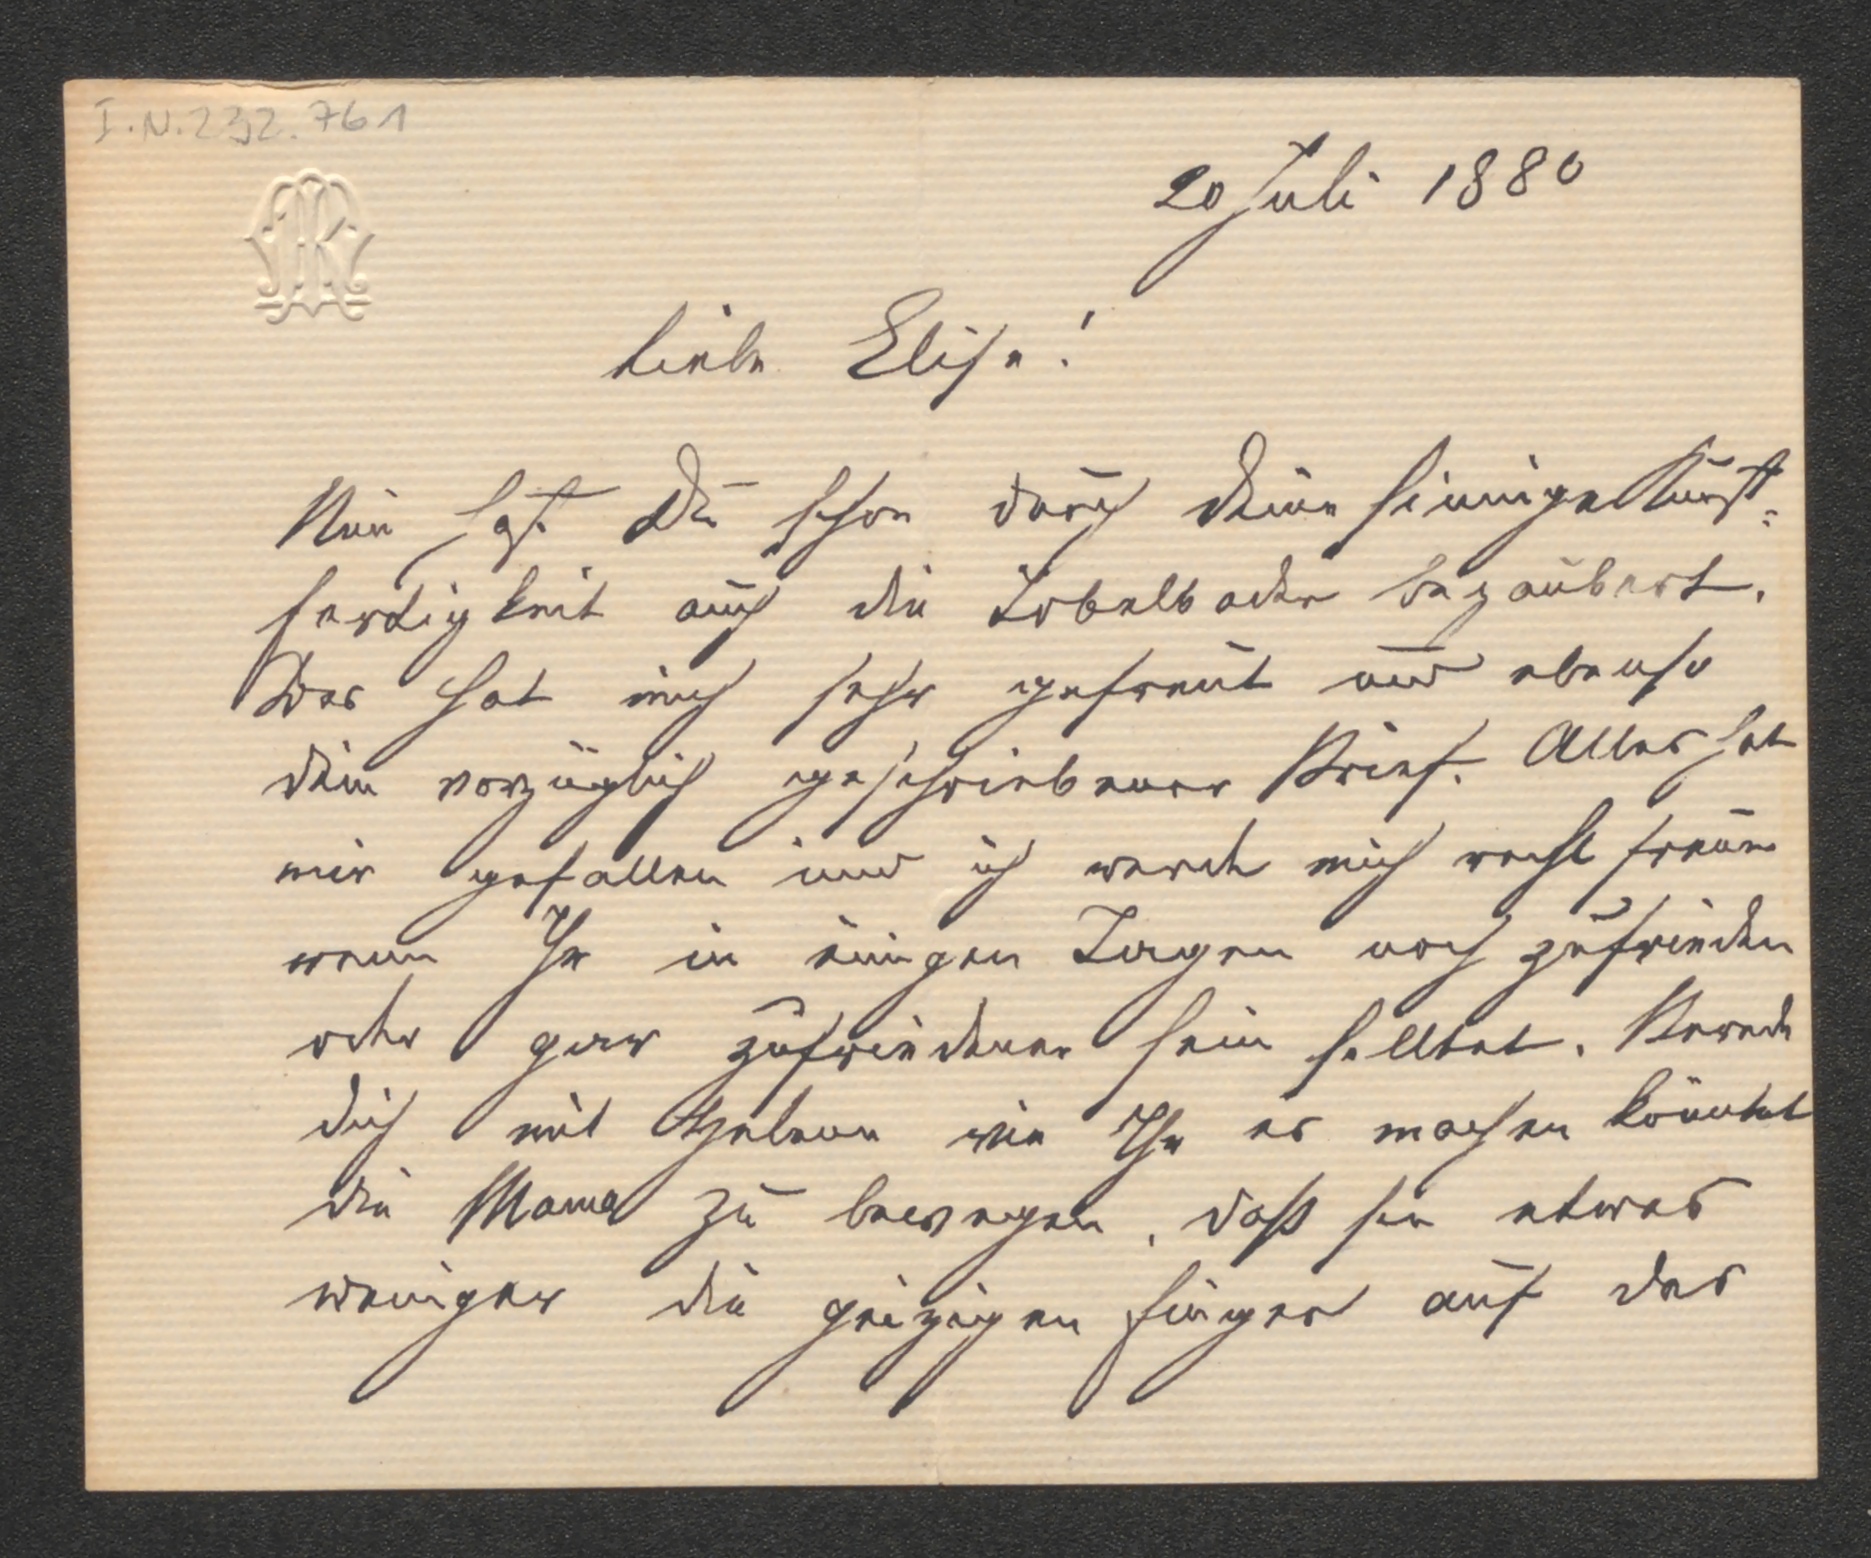 I.N.232.761
20 Juli 1880
Liebe Elise!
Nun hast Du schon durch Deine sinnige Kunst-
fertigkeit auch die Tobelbader bezaubert.
Das hat mich sehr gefreut und ebenso
dein vorzüglich geschriebener Brief. Alles hat
mir gefallen und ich werde mich recht freuen
wenn Ihr in einigen Tagen noch zufrieden
oder gar zufriedener sein solltet. Berede
dich mit Helene wie Ihr es machen könntet
die Mama zu bewegen, daß sie etwas
weniger die geizigen Finger auf das